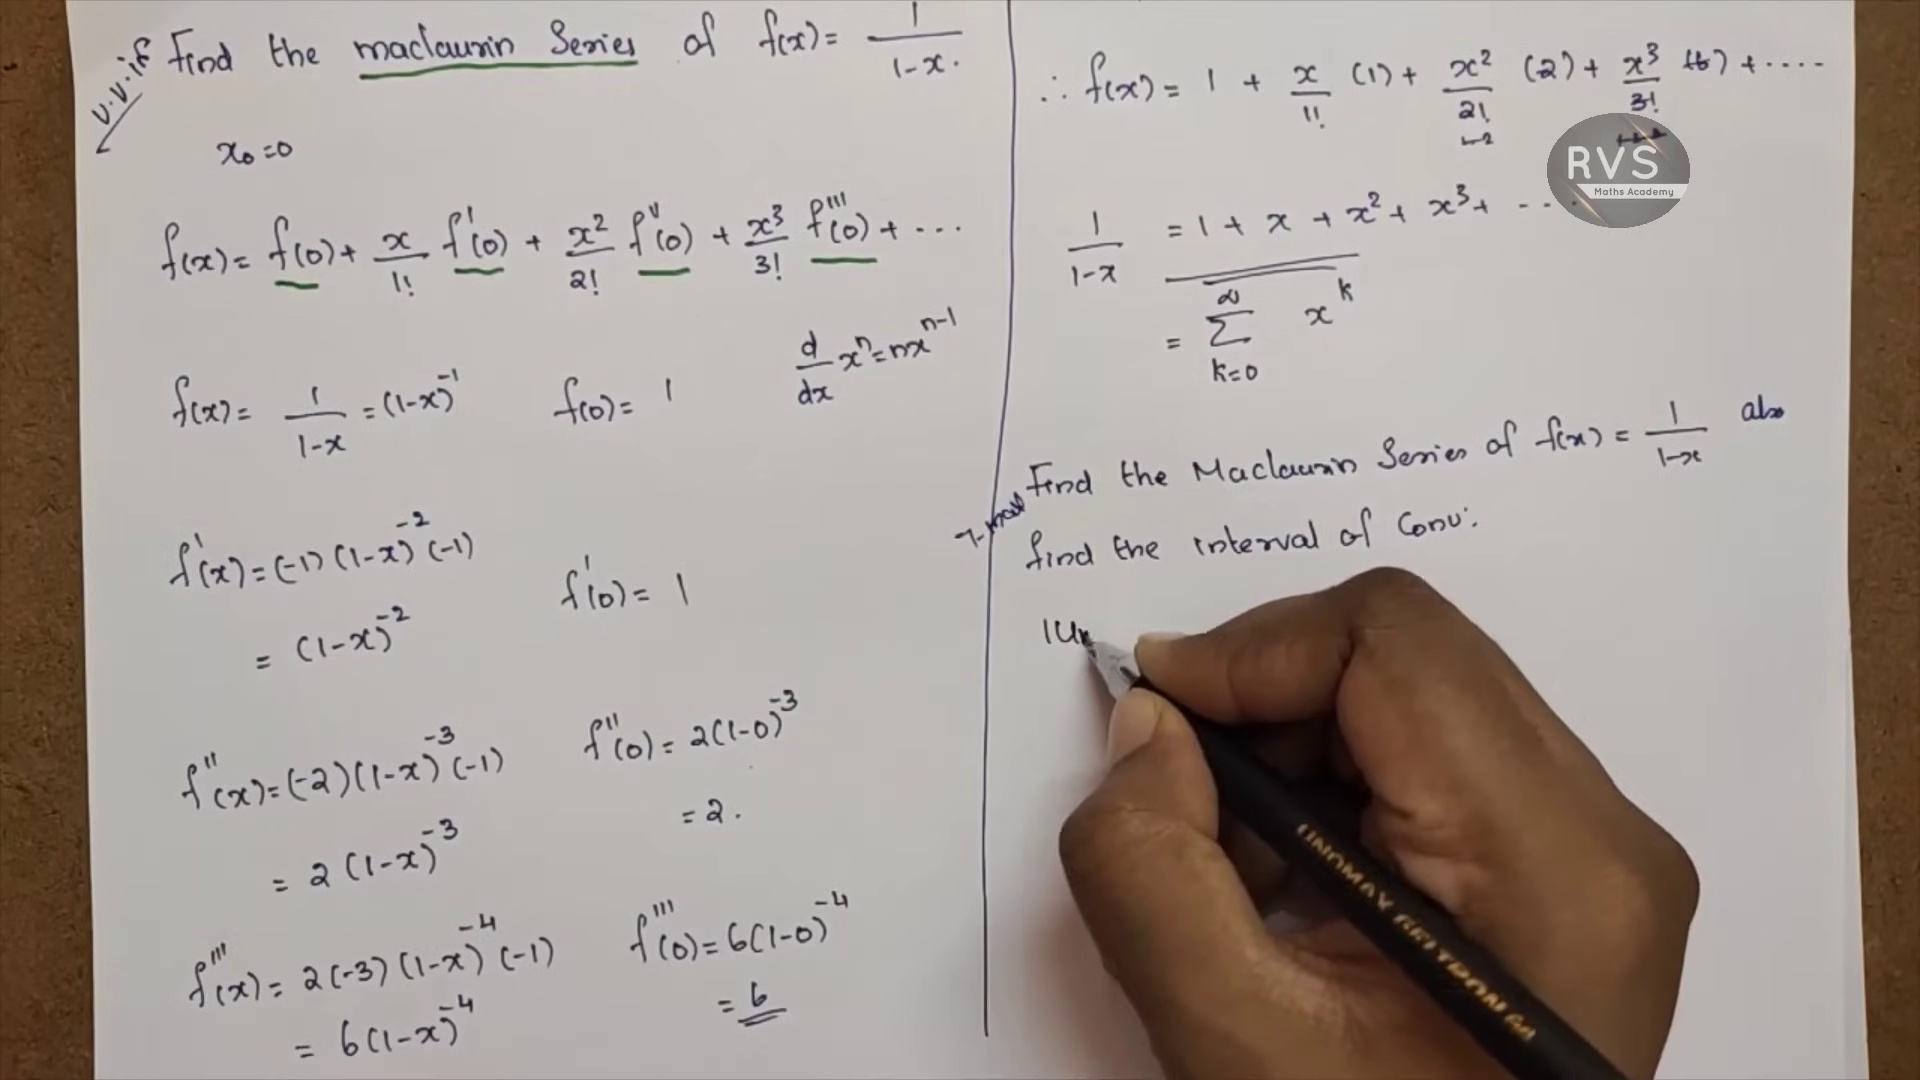 Find the maclaurin Series of f(x) = 1/1-x.
x₀=0
f(x) = f(0) + x/1! f'(0) + x²/2! f''(0) + x³/3! f'''(0) + ...
d/dx xⁿ = nxⁿ⁻¹
f(x) = 1/1-x = (1-x)⁻¹ f(0) = 1
f'(x) = (-1)(1-x)⁻²(-1)
= (1-x)⁻² f'(0) = 1
f''(x) = (-2)(1-x)⁻³(-1) f''(0) = 2(1-0)⁻³
= 2(1-x)⁻³ = 2.
f'''(x) = 2(-3)(1-x)⁻⁴(-1) f'''(0) = 6(1-0)⁻⁴
= 6(1-x)⁻⁴ = 6
∴ f(x) = 1 + x/1! (1) + x²/2! (2) + x³/3! (6) + ....
RVS
Maths Academy
1/1-x = 1 + x + x² + x³ + ....
= ∞ Σ k=0 xᵏ
Find the Maclaurin Series of f(x) = 1/1-x also
find the interval of Conv.
UNOMAX